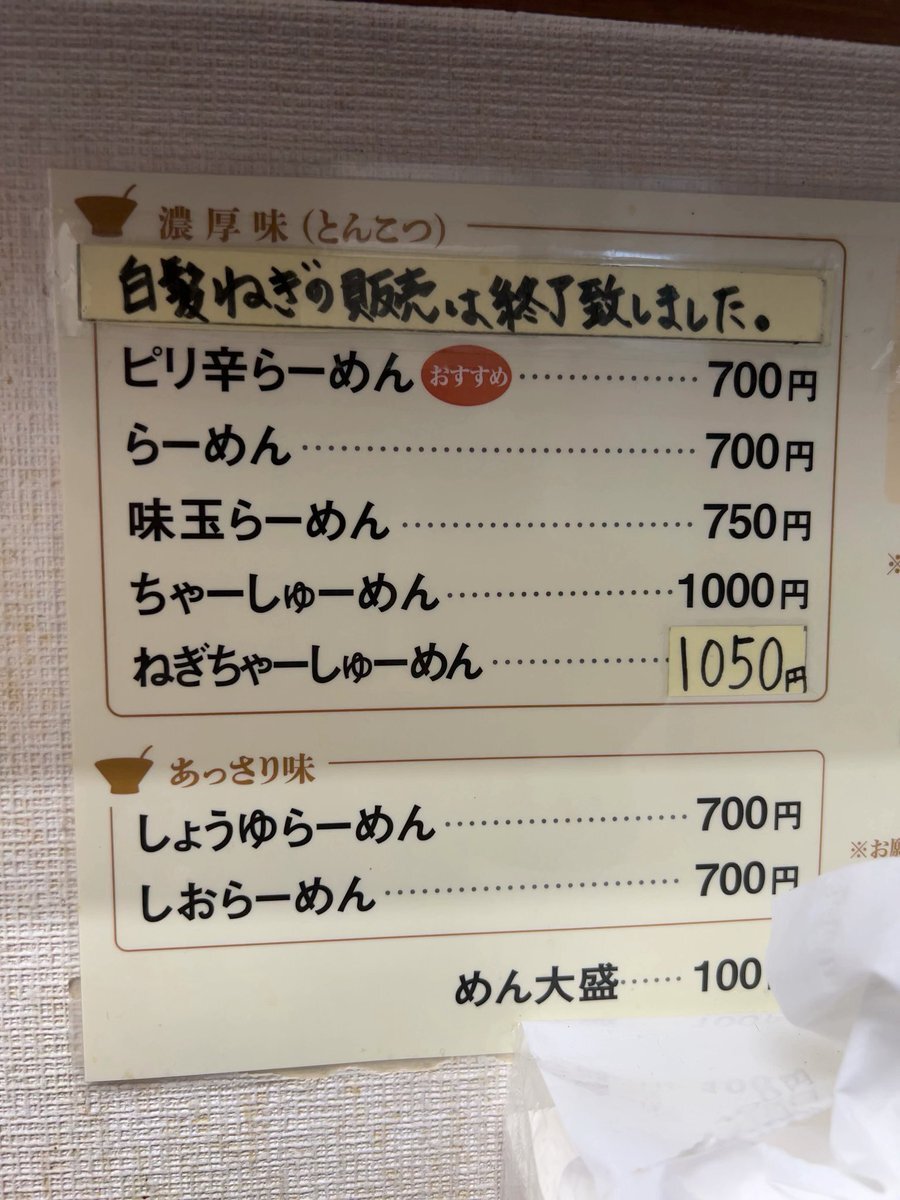 濃厚味(とんこつ)
白髪ねぎの販売は終了致しました。
ピリ辛らーめん おすすめ ………… 700円
らーめん ………… 700円
味玉らーめん ………… 750円
ちゃーしゅーめん ………… 1000円
ねぎちゃーしゅーめん ………… 1050円
あっさり味
しょうゆらーめん ………… 700円
しおらーめん ………… 700円
※お願
めん大盛 …… 100